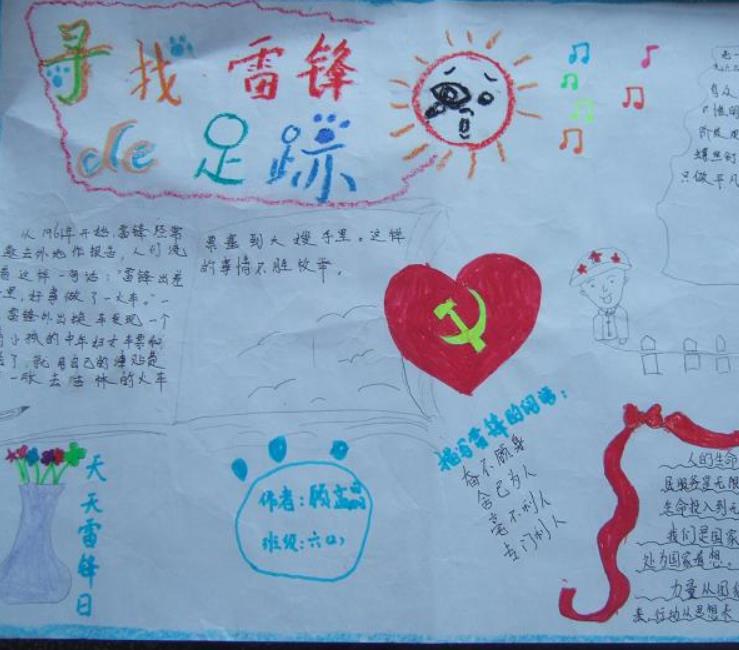 寻找雷锋
de足迹
从1961年开始,雷锋经常
去外地作报告,人们流
着这样一句话:"雷锋出差
里,好事做了一火车。"一
雷锋外出换车发现一个
小孩的中年妇女车票和
了,就用自己的津贴费
一张去吉林的火车
票塞到大嫂手里。这样
的事情不胜枚举。
天天雷锋日
作者:顾
班级:六
描写雷锋的词语:
奋不顾身
舍己为人
毫不利人
专门利人
只做平凡
人的生命
服务是无限
生命投入到无
我们是国家
处为国家着想。
力量从团结
来,行动从思想来